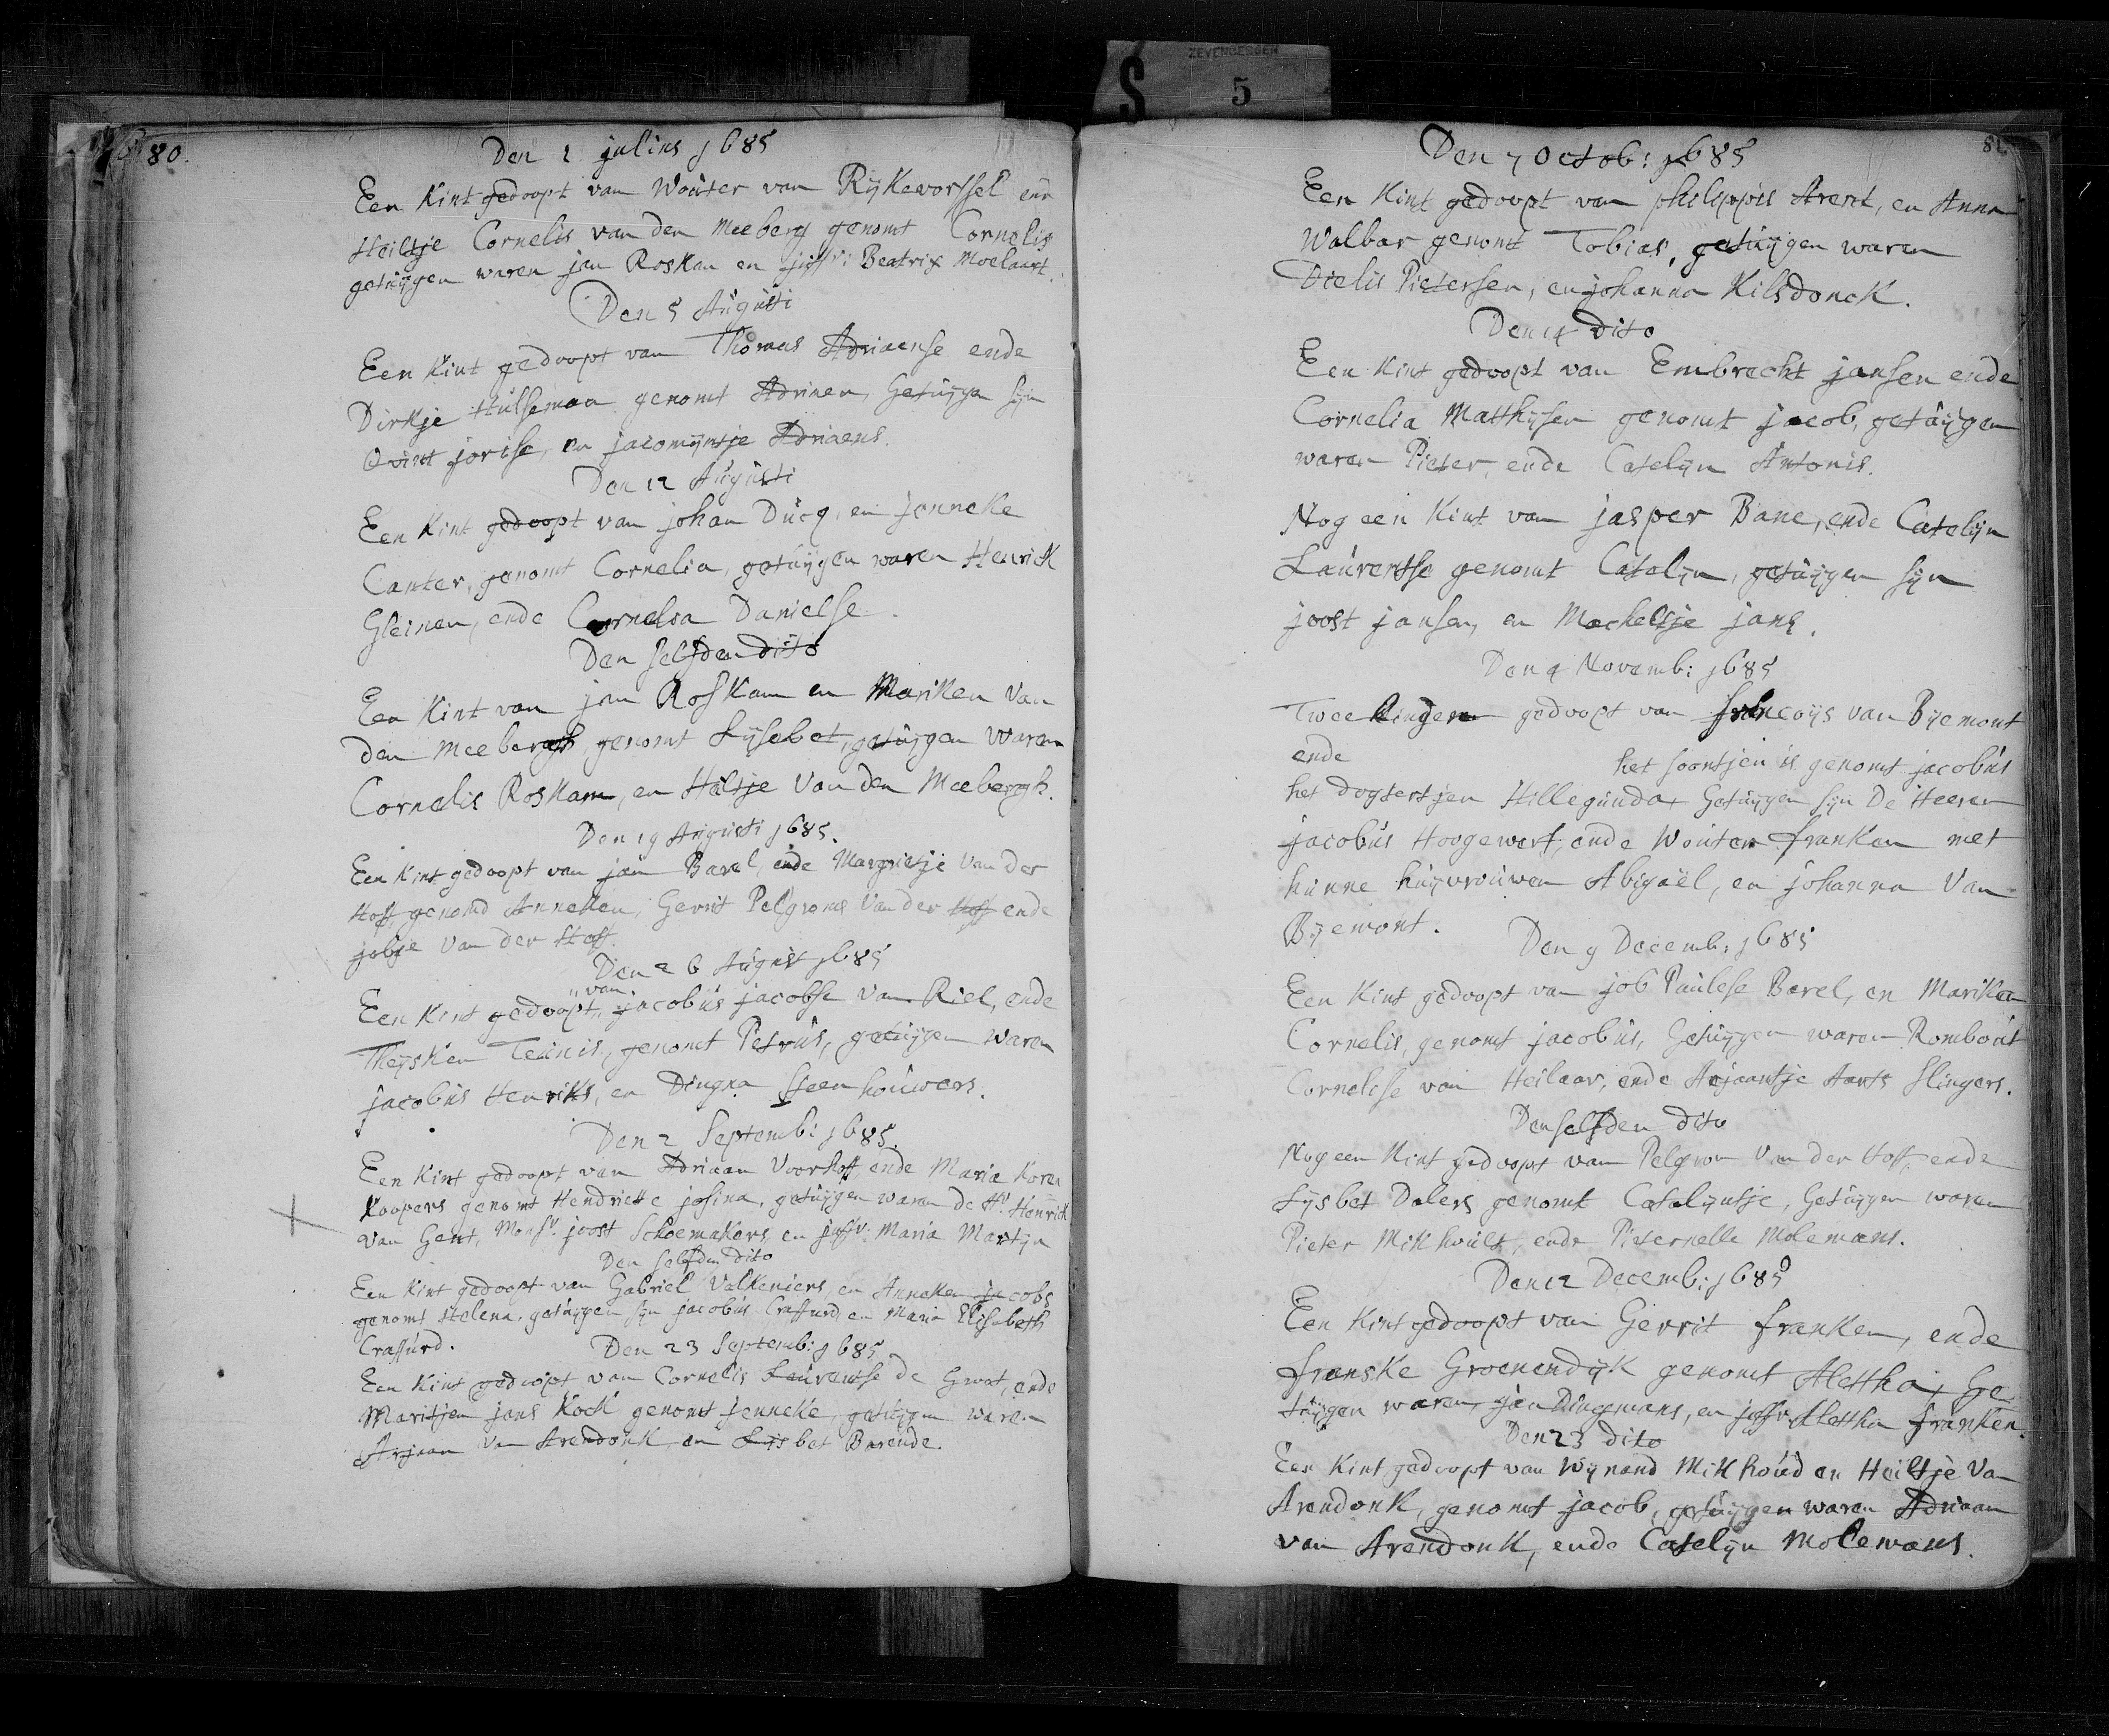 ZEVENBERGEN
S 5
80.
Den 1 julius 1685
Een Kint gedoopt van Wouter van Rijkevorssel ende
Heiltje Cornelis van den Meeberg genomt Cornelis
getuijgen waren jan Roskam en juffr: Beatrix Moelaart.
Den 5 Augusti
Een Kint gedoopt van Thomas Adriaense ende
Dirkje Hulseman genomt Adrinen, Getuijgen sijn
Quint jorise, en jacomijntje Adriaens.
Den 12 Augusti
Een Kint gedoopt van johan Ducq, en jenneke
Canter, genomt Cornelia, getuijgen waren Henrick
Gleinen, ende Cornelia Danielse.
Den selfden dito
Een Kint van jan Roskam en Mariken van
den Meebergh, genomt Lijsebet, getuijgen waren
Cornelis Roskam, en Hiltje van den Meebergh.
Den 19 Augusti 1685.
Een Kint gedoopt van jan Barel, ende Margrietje van der
Hoff, genomd Anneken, Gerrit Pelgroms van der Hoff ende
jobje van der Hoff.
Den 26 August 1685
Een Kint gedoopt, van jacobus jacobse van Riel, ende
Theijsken Teunis, genomt Petrus, getuijgen waren
jacobus Henriks, en Dingna Steenhouwers.
Den 2 Septemb: 1685.
Een Kint gedoopt van Adriaan Voorhoff, ende Maria Koren
Koopers genomt Hendriette josina, getuijgen waren de Hr. Henrick
van Gent, Monsr. joost Schoemakers, en juffr: Maria Martijn
Den selfden dito
Een Kint gedoopt van Gabriel Valkeniers, en Anneken jacobs
genomt Helena, getuijgen sijn jacobus Craffurd, en Maria Elisabeth
Craffurd.
Den 23 Septemb: 1685
Een Kint gedoopt van Cornelis Laurentse de Groot, ende
Maritjen jans Kock genomt jenneke, getuijgen waren
Arjaan van Arendonk, en Lijsbet Barende.
81
Den 7 Octob: 1685
Een Kint gedoopt van philippus Arent, en Anna
Walbar genomt Tobias, getuijgen waren
Dielis Pietersen, en johanna Kilsdonck.
Den 14 dito
Een Kint gedoopt van Embrecht jansen ende
Cornelia Matthijsen genomt jacob, getuijgen
waren Pieter, ende Catelijn Antonis.
Nog een Kint van jasper Bane, ende Catelijn
Laurentse genomt Catelijn, getuijgen sijn
joost jansen, en Macheltje jans.
Den 4 Novemb: 1685
Twee Kinderen gedoopt van francoijs van Bijemont
ende het soontjen is genomt jacobus
het dogtertjen Hillegunda, Getuijgen sijn De Heeren
jacobus Hoogewerf, ende Wouter franken met
hunne huijvrouwen Abigaël, en johanna van
Bijemont.
Den 9 Decemb: 1685
Een Kint gedoopt van job Paulese Barel, en Mariken
Cornelis, genomt jacobus, Getuijgen waren Rombout
Cornelisse van Heilaar, ende Arjaantje Aarts Slingers.
Den selfden dito
Nog een Kint gedoopt van Pelgrom van der Hoff, ende
Lijsbet Dalers genomt Catelijntje, Getuijgen waren
Pieter Mikhoult, ende Pieternelle Molemans.
Den 12 Decemb: 1685
Een Kint gedoopt van Gerrit franken, ende
franske Groenendijk genomt Alettha, Ge-
tuijgen waren, jan Dingemans, en juffr. Alettha franken.
Den 23 dito
Een Kint gedoopt van Wijnand Mikhoud en Heiltje van
Arendonk, genomt jacob, getuijgen waren Adriaan
van Arendonk, ende Catelijn Molemans.